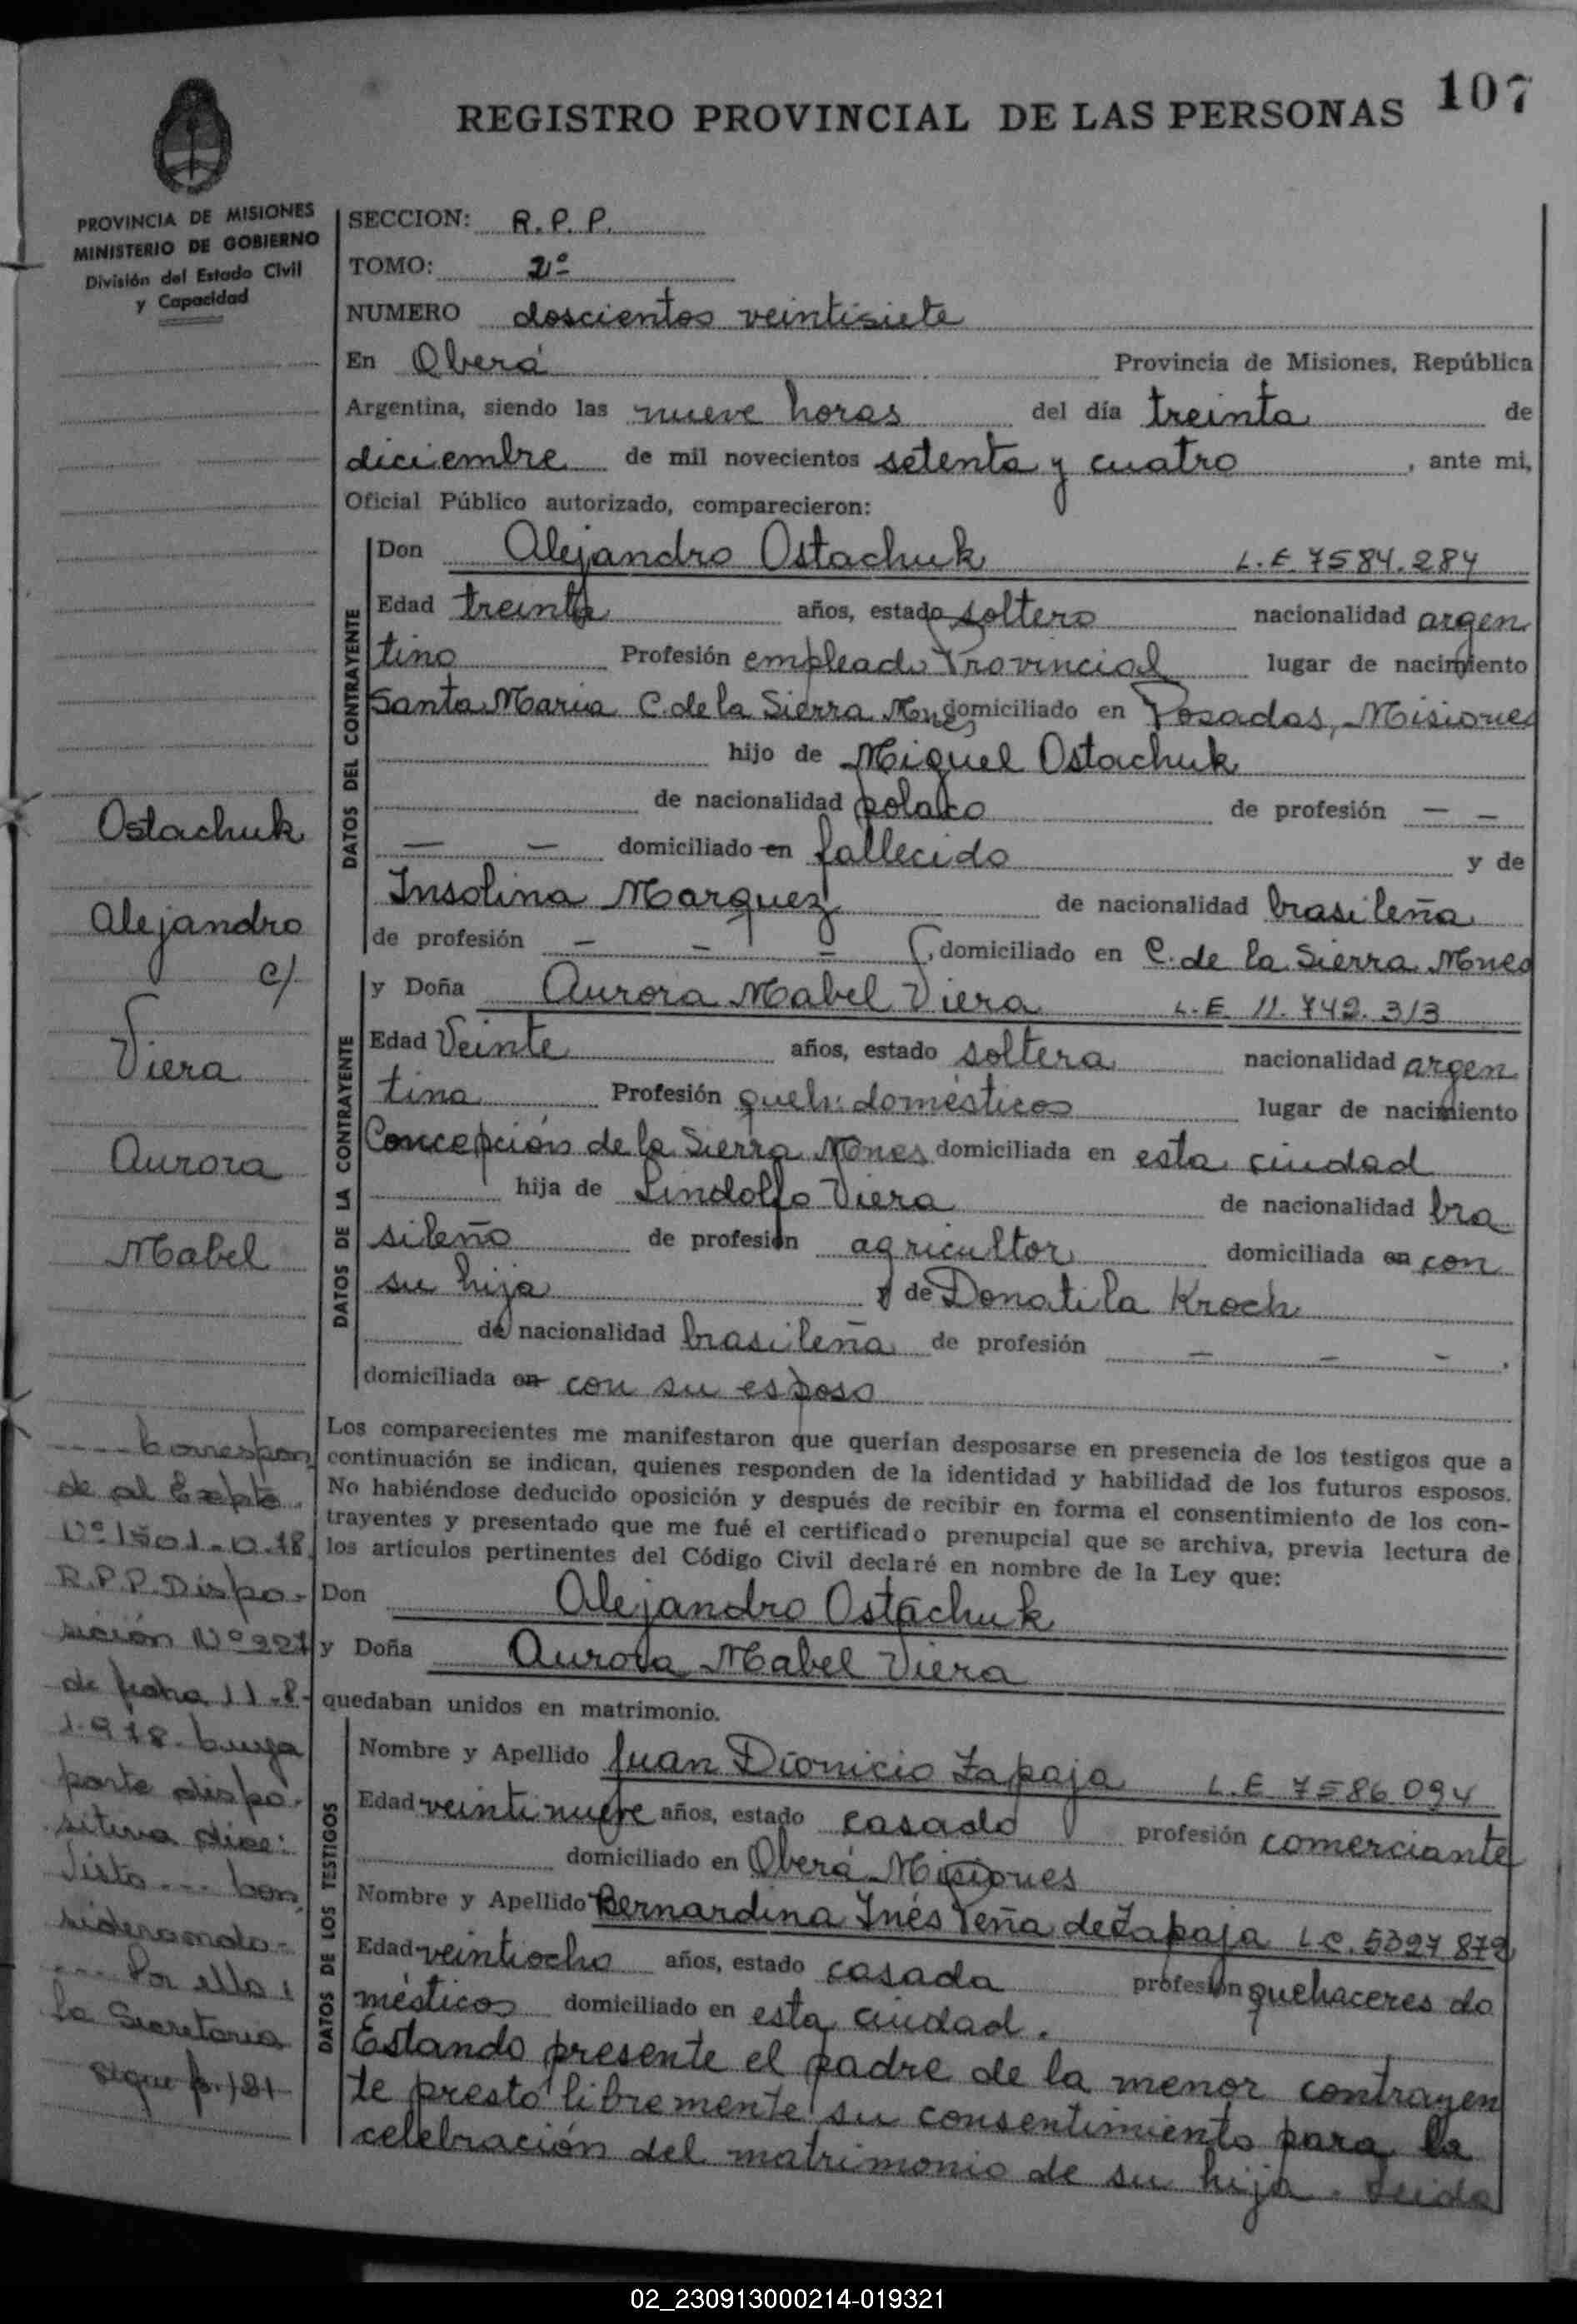 107
REGISTRO PROVINCIAL DE LAS PERSONAS
PROVINCIA DE MISIONES
MINISTERIO DE GOBIERNO
División del Estado Civil
y Capacidad
SECCION: R.P.P.
TOMO: 2º
NUMERO doscientos veintisiete
En Oberá Provincia de Misiones, República
Argentina, siendo las nueve horas del día treinta de
diciembre de mil novecientos setenta y cuatro, ante mi,
Oficial Público autorizado, comparecieron:
DATOS DEL CONTRAYENTE
Don Alejandro Ostachuk L.E. 7584.284
Edad treinta años, estado soltero nacionalidad argen
tino Profesión empleado Provincial lugar de nacimiento
Santa Maria C. de la Sierra Mnes domiciliado en Posadas, Misiones
hijo de Miguel Ostachuk
de nacionalidad polaco de profesión — —
— — domiciliado en fallecido y de
Insolina Marquez de nacionalidad brasileña
de profesión — — — domiciliado en C. de la Sierra Mnes
DATOS DE LA CONTRAYENTE
y Doña Aurora Mabel Viera L.E 11.742.313
Edad Veinte años, estado soltera nacionalidad argen
tina Profesión queh. domésticos lugar de nacimiento
Concepción de la Sierra Mnes domiciliada en esta ciudad
hija de Lindolfo Viera de nacionalidad bra
sileño de profesión agricultor domiciliada en con
su hija y de Donatila Kroch
de nacionalidad brasileña de profesión — — —.
domiciliada en con su esposo
Los comparecientes me manifestaron que querían desposarse en presencia de los testigos que a
continuación se indican, quienes responden de la identidad y habilidad de los futuros esposos.
No habiéndose deducido oposición y después de recibir en forma el consentimiento de los con-
trayentes y presentado que me fué el certificado prenupcial que se archiva, previa lectura de
los artículos pertinentes del Código Civil declaré en nombre de la Ley que:
Don Alejandro Ostachuk
y Doña Aurora Mabel Viera
quedaban unidos en matrimonio.
DATOS DE LOS TESTIGOS
Nombre y Apellido Juan Dionicio Zapaja L.E 7586094
Edad veintinueve años, estado casado profesión comerciante
domiciliado en Oberá Misiones
Nombre y Apellido Bernardina Inés Peña de Zapaja L.C. 5327872
Edad veintiocho años, estado casada profesión quehaceres do
mésticos domiciliado en esta ciudad.
Estando presente el padre de la menor contrayen
te prestó libremente su consentimiento para la
celebración del matrimonio de su hija. Leida
Ostachuk
Alejandro
c/
Viera
Aurora
Mabel
.... Correspon
de al Expte.
Nº 1501-O-78
R.P.P. Dispo-
sición Nº 327
de fecha 11-8-
1.978. Cuya
parte dispo-
sitiva dice:
Visto... Con
siderando-
... Por ello:
la Secretaria
sigue f. 181
02_230913000214-019321